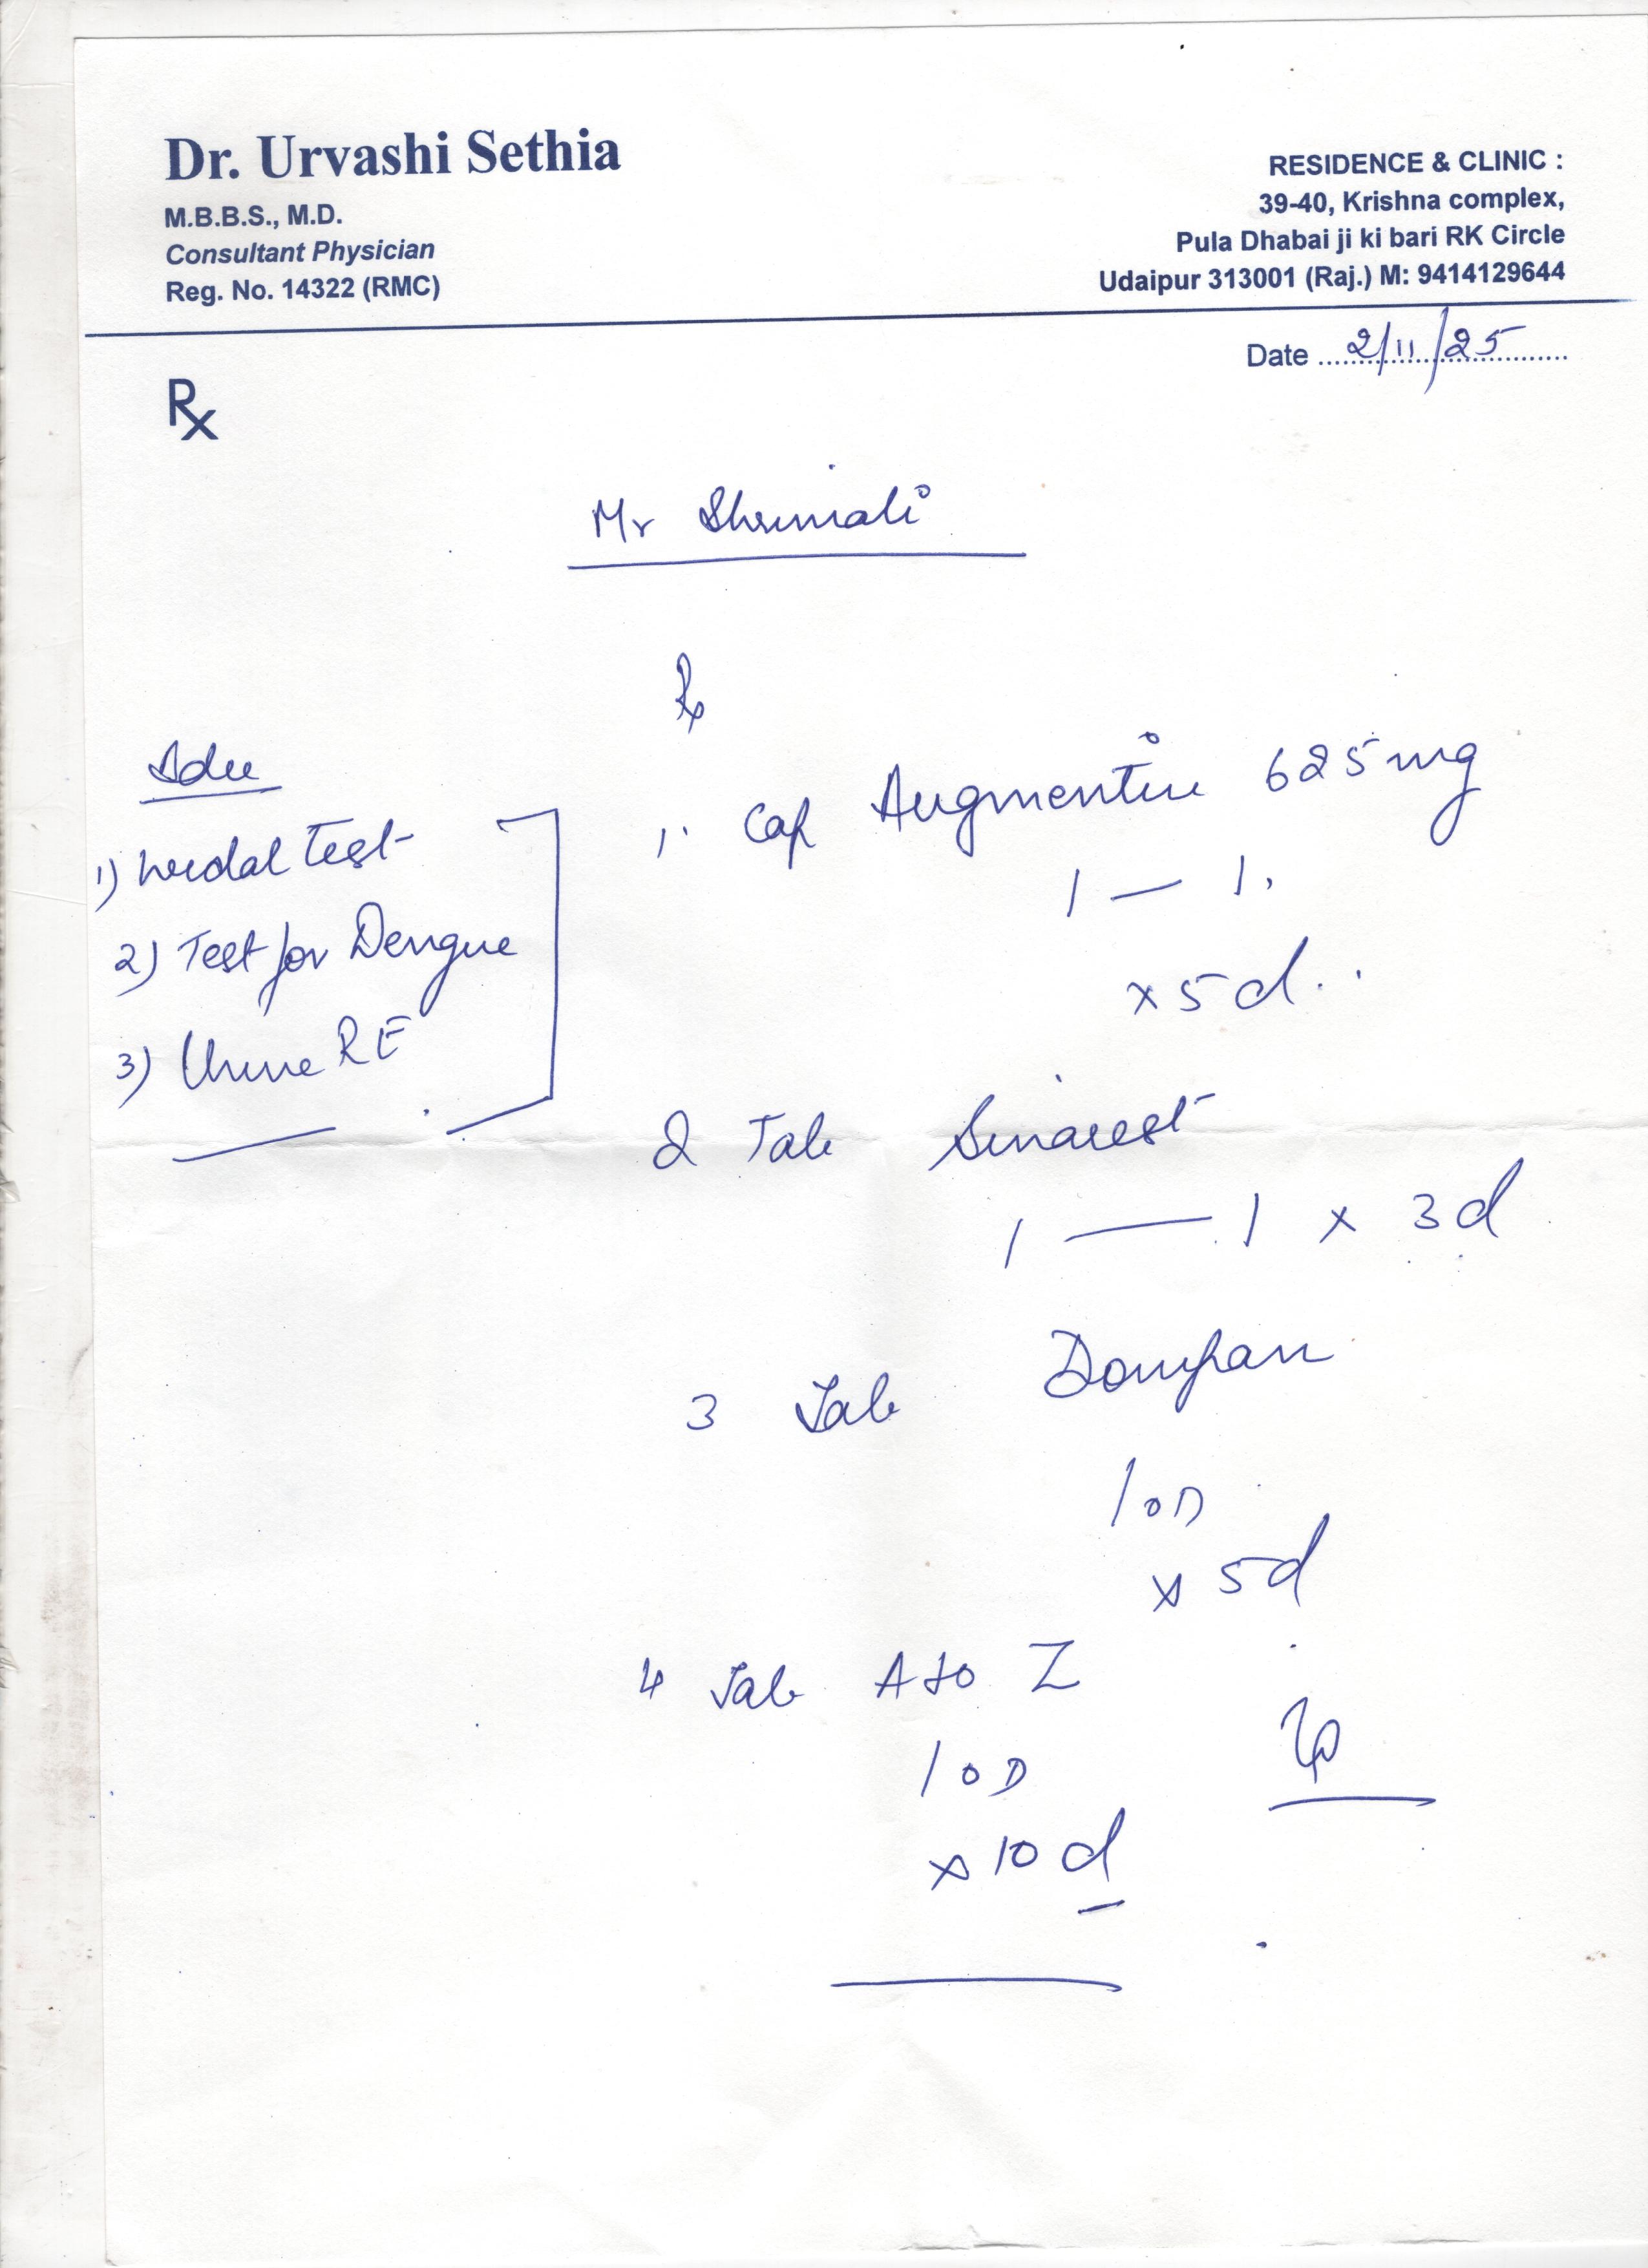 Dr. Urvashi Sethia
M.B.B.S., M.D.
Consultant Physician
Reg. No. 14322 (RMC)
RESIDENCE & CLINIC :
39-40, Krishna complex,
Pula Dhabai ji ki bari RK Circle
Udaipur 313001 (Raj.) M: 9414129644
Date 2/11/25
Rx
Mr Shrimali
Rx
Adv
1) Widal Test
2) Test for Dengue
3) Urine RE
1. Cap Augmentin 625mg
1 — 1.
x 5d..
2 Tab Sinarest
1 — 1 x 3d
3 Tab Dompan
1 OD
x 5d
4 Tab A to Z
1 OD
x 10 d